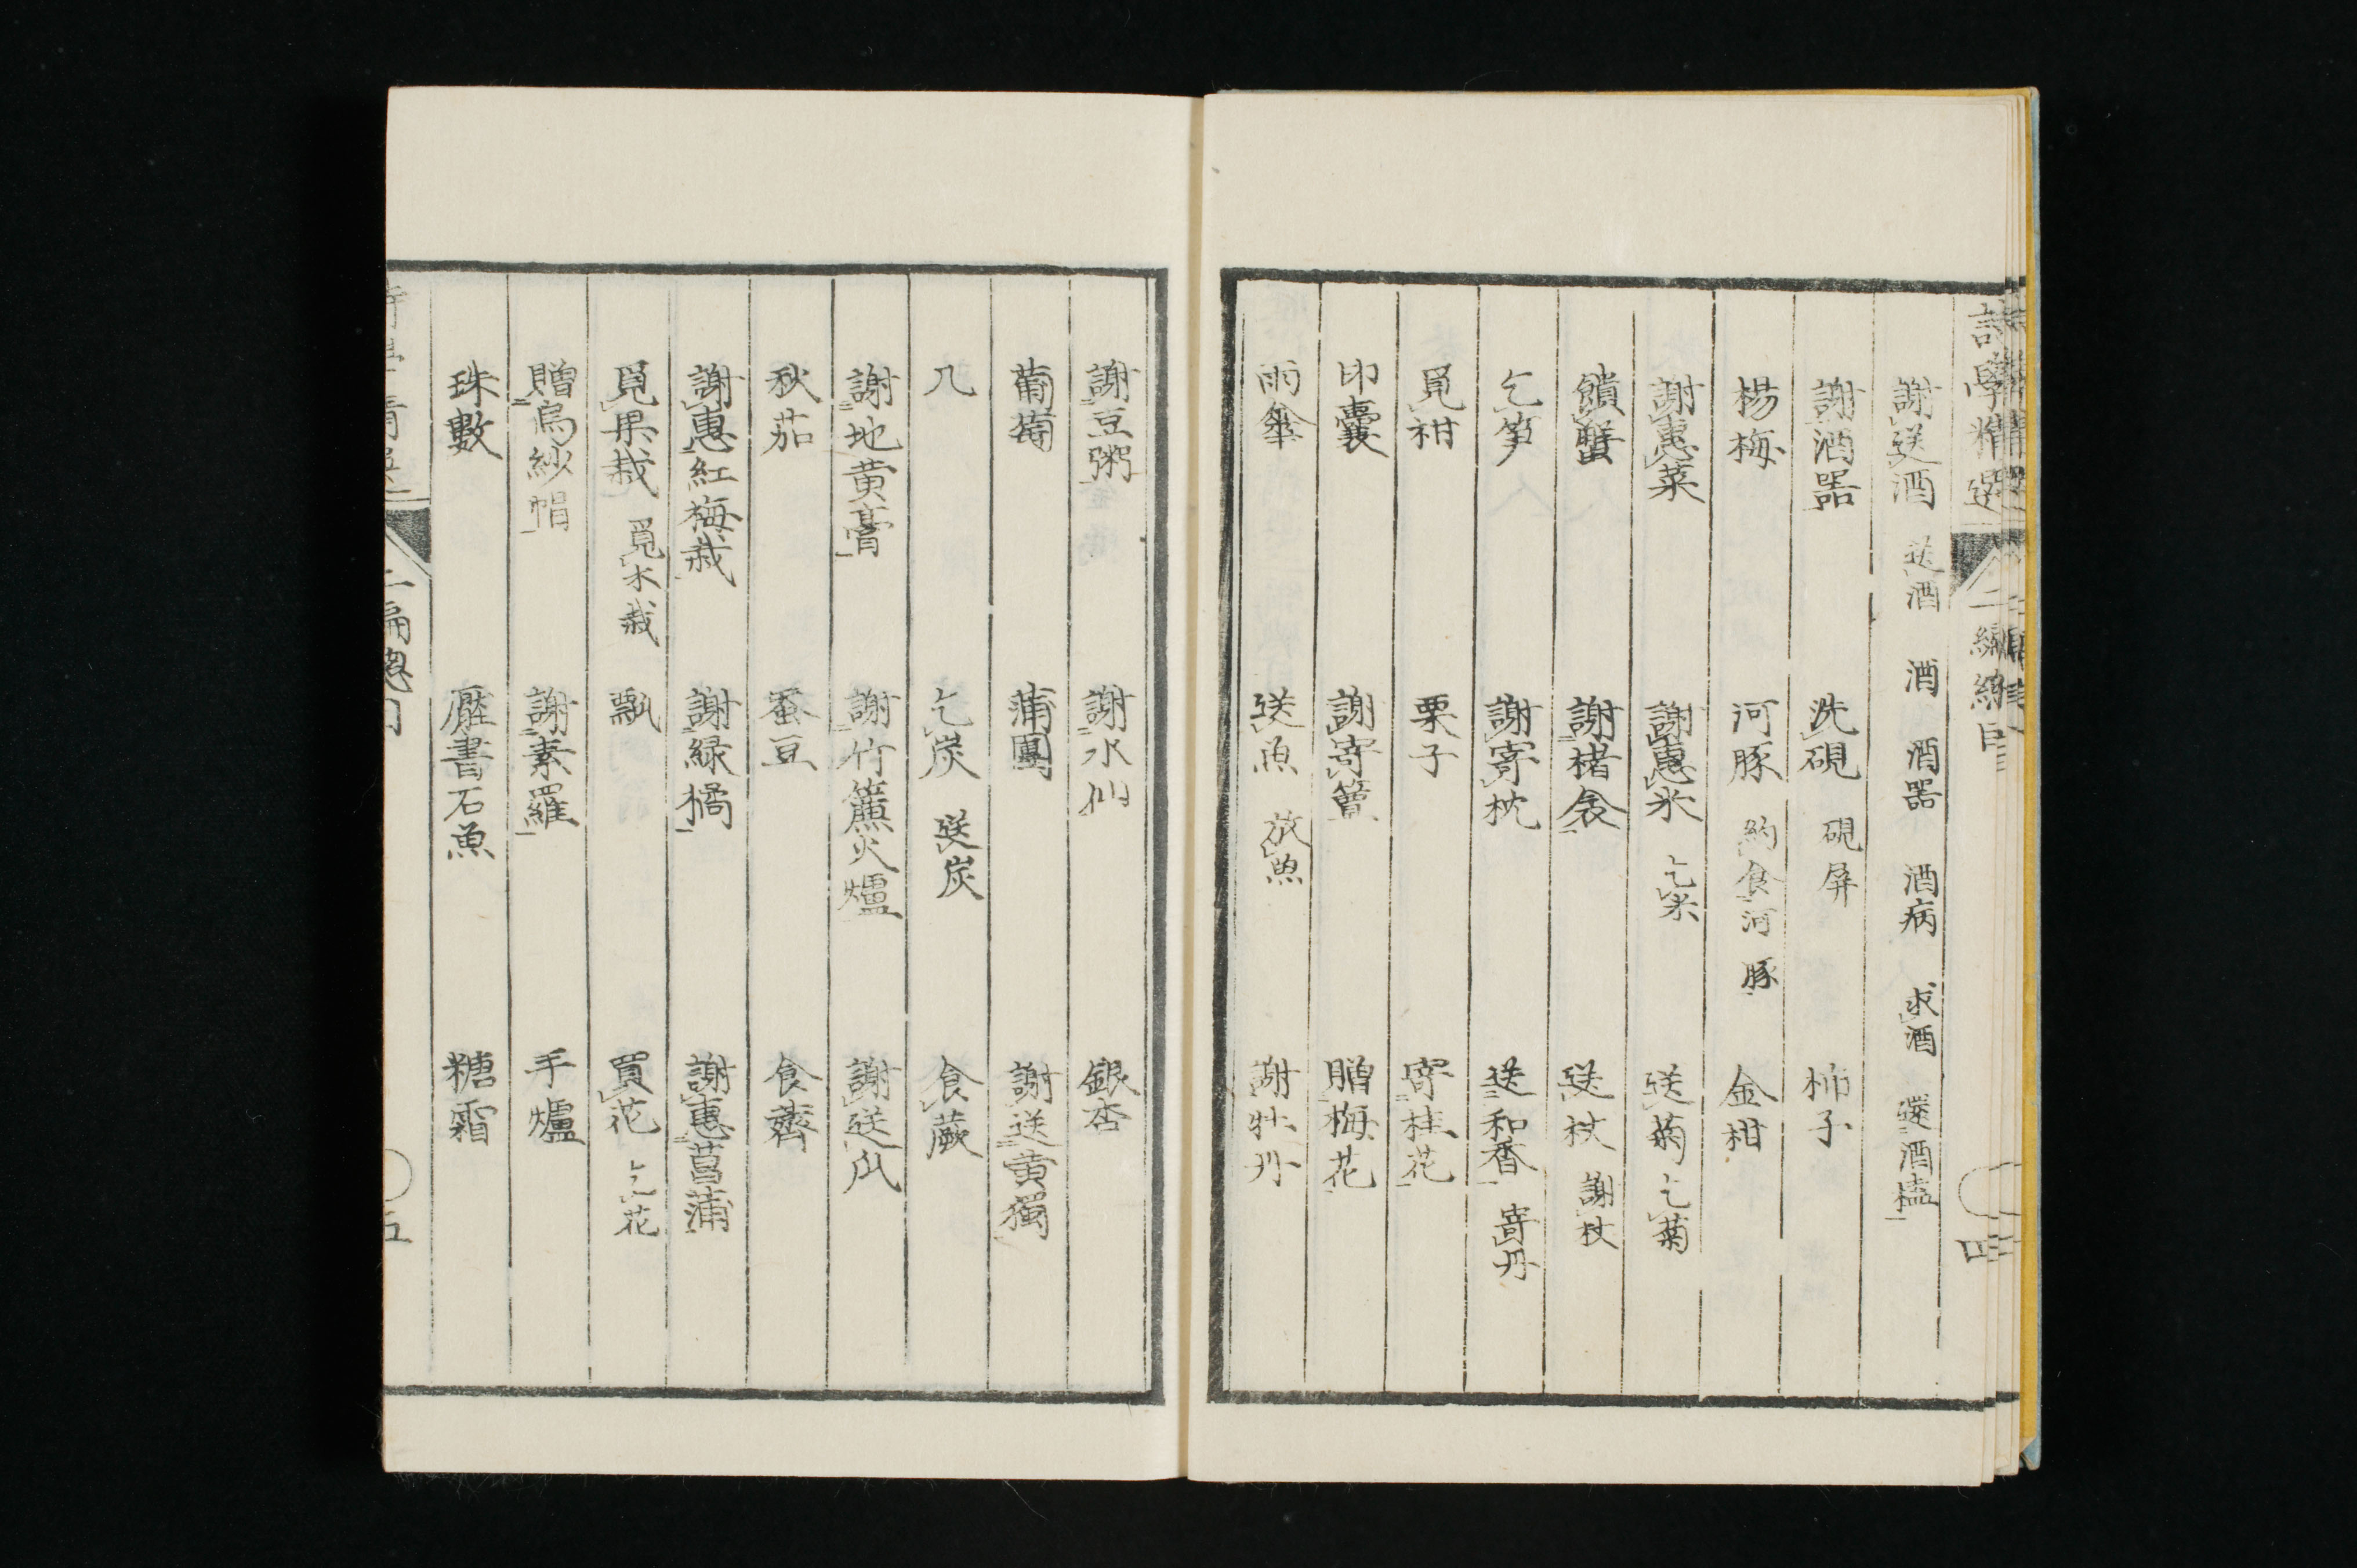 詩學精選 二編總目 四
謝送酒 送酒 酒 酒器 酒病 求酒 送酒榼
謝酒器 洗硯 硯屏 柿子
楊梅 河豚 約食河豚 金柑
謝惠菜 謝惠米 乞米 送菊 乞菊
饋蟹 謝楮衾 送杖 謝杖
乞筆 謝寄枕 送和香 寄丹
覓柑 栗子 寄桂花
印囊 謝寄簟 贈梅花
雨傘 送魚 放魚 謝牡丹
謝豆粥 謝水仙 銀杏
葡萄 蒲團 謝送黄獨
几 乞炭 送炭 食蕨
謝地黄膏 謝竹簾火爐 謝送瓜
秋茄 蚕豆 食薺
謝惠紅梅栽 謝緑橘 謝惠菖蒲
覓果栽 覓木栽 瓢 買花 乞花
贈烏紗帽 謝素羅 手爐
珠數 壓書石魚 糖霜
二編總目 五